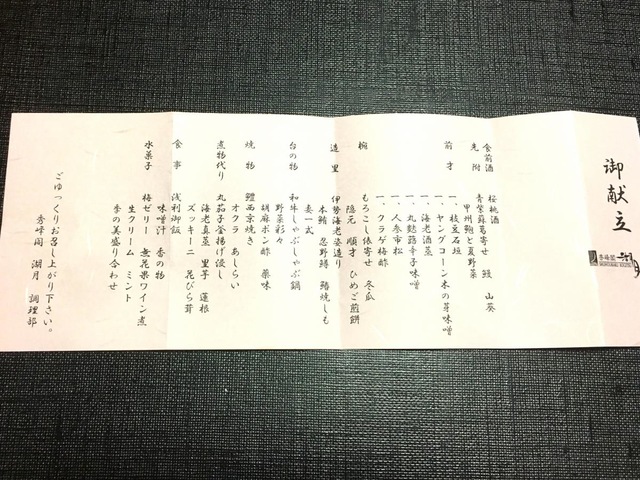 御献立
秀峰閣 湖月
食前酒 桜桃酒
先附 青紫蘇葛寄せ 鰻 山葵
甲州鮑と夏野菜
前才 一、枝豆石垣
一、ヤングコーン木の芽味噌
一、海老酒蒸
一、丸麩蕗辛子味噌
一、人参市松
一、クラゲ梅酢
椀 もろこし俵寄せ 冬瓜
隠元 順才 ひめご煎餅
造里 伊勢海老姿造り
本鮪 忍野鱒 鱧焼しも
妻一式
台の物 和牛しゃぶしゃぶ鍋
野菜彩々
胡麻ポン酢 薬味
焼物 鱧西京焼き
オクラ あしらい
煮物代り 丸茄子釜揚げ浸し
海老真蒸 里芋 蓮根
ズッキーニ 花びら茸
食事 浅利御飯
味噌汁 香の物
水菓子 梅ゼリー 無花果ワイン煮
生クリーム ミント
季の美盛り合わせ
ごゆっくりお召し上がり下さい。
秀峰閣 湖月 調理部